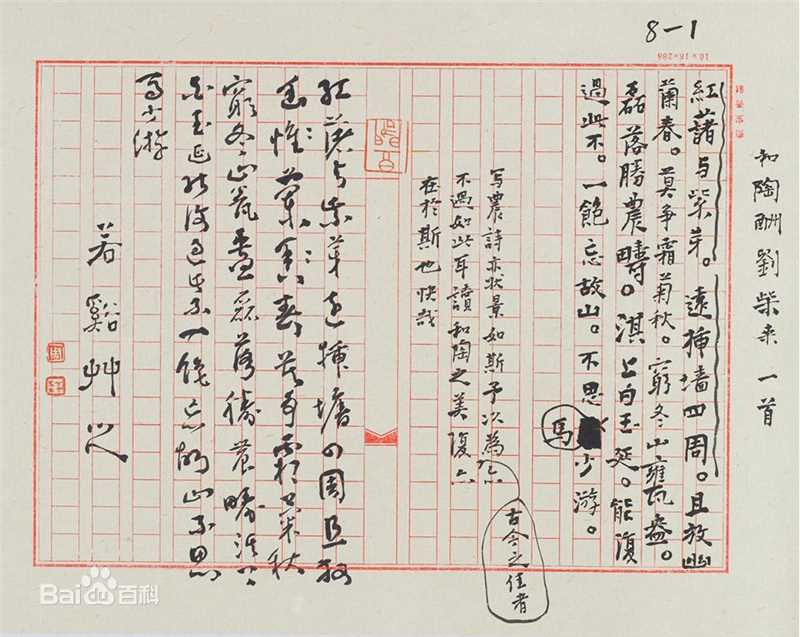 8-1
和陶酬劉柴桒一首
紅藷与柴芽。遠插墙四周。且放幽
蘭春。莫争霜菊秋。窮冬山甕盎。
磊落勝農疇。淇上白玉延。能復
過此不。一飽忘故山。不思馬少游。
写農詩亦状景如斯予以為亦
古今之佳者
不過如此耳讀和陶之美復亦
在於斯也快哉
红藷与紫芽遠插墙四周且放
幽蘭春莫争霜菊秋
窮冬山甕盎磊落勝農疇淇上
白玉延能復過此不一飽忘故山不思
馬少游
若谿艸人
Bai百科